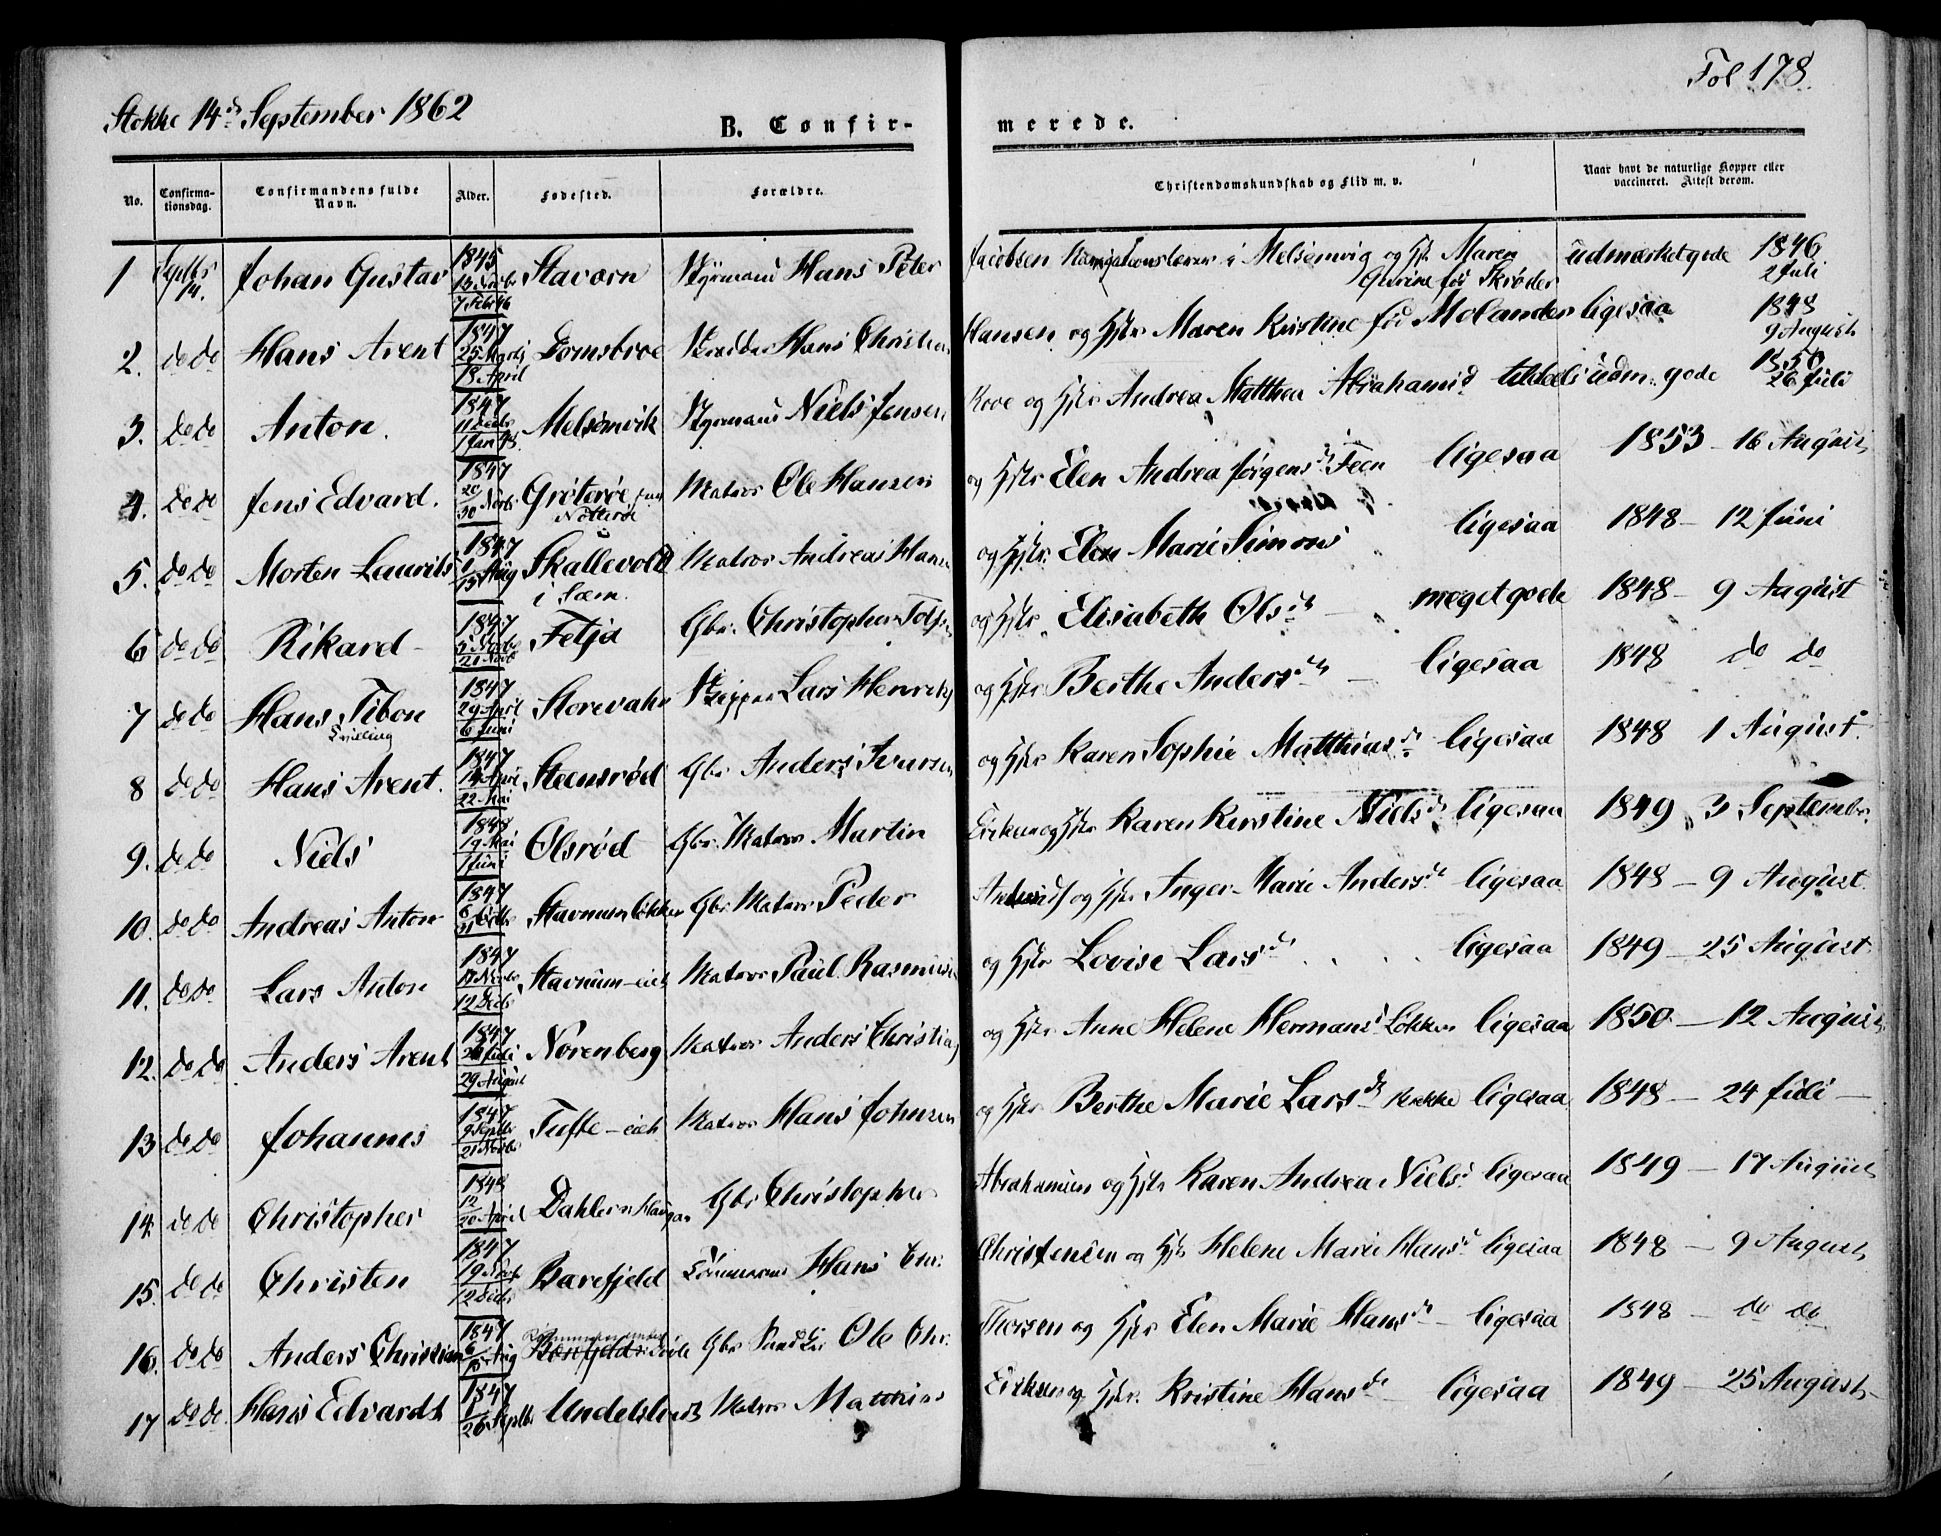 Stokke 14de September 1862
B. Confir-
merede.
Fol 178.
No.
Confirma-
tionsdag.
Confirmandens fulde
Navn.
Alder.
Fødested.
Forældre.
Christendomskundskab og Flid m. v.
Naar havt de naturlige Kopper eller
vaccineret. Attest derom.
1 Septbr 14. Johan Gustav 1845 13 Novbr 7 Febr 46 Staværn Styrmand Hans Peter Jacobsen Navigationslærer i Melsomvig og Hstr Maren Gurine fød Skrøder udmærketgode 1846 2 Juli
2. do do Hans Arent 1847 25 Marts 18 April Domsbroe Skrædder Hans Christian Hansen og Hstr Maren Kirstine fød Molander ligesaa 1848 9 August
3. do do Anton. 1847 11 Decbr 1 Jan 48. Melsomvik Styrmand Niels Jensen Rove og Hstr Andrea Matthea Abrahamsd tildeels udm. gode 1850 26 Juli
4. do do Jens Edvard. 1847 20 30 Novbr Grøterøe Nøtterøe Matros Ole Hansen og Hstr Elen Andrea Jørgensd Feen ligesaa 1853 – 16 August
5. do do Morten Laurits 1847 1 15 Aug Skallevold i Sæm. Matros Andreas Hansen og Hstr. Elen Marie Simons ligesaa 1848 – 12 Juni
6 do do Rikard – 1847 5 21 Novbr Feljd Gbr. Christopher og Hstr Elisabeth Olsdr – meget gode 1848 – 9 August
7 do do Hans Tibon Tvilling 1847 29 April 6 Juni Storevahr Skipper Lars Henrik og Hstr Berthe Andersdr – ligesaa 1848 do do
8 do do Hans Arent. 1847 14 April 22 Mai Steensrød Gbr Anders Iversen og Hstr Karen Sophie Matthiasdr ligesaa 1848 1 August.
9. do do Niels 1848 19 Mai 1 Juni Olsrød Gbr. Matros Martin Eriksen og Hstr Karen Kirstine Nielsdr ligesaa 1849 3 September
10. do do Andreas Anton 1847 6 31 Octbr Stavnumløkken Gbr Matros Peder Anders og Hstr Inger Marie Andersdr – ligesaa 1848 – 9 August.
11. do do Lars Anton 1847 17 Novbr 12 Decbr Stavnum-eiet Matros Paul Rasmusen og Hstr Lovise Larsdr . . . . ligesaa 1849 – 25 August.
12. do do Anders Arent 1847 24 Juli 29 August Norenberg Matros Anders Christian og Hstr Anne Helene Hermansd Løkken ligesaa 1850 – 12 August
13 do do Johannes 1847 9 Septbr 21 Novbr Tufte – eiet Matros Hans Johnsen og Hstr Berthe Marie Larsdr Kræke ligesaa 1848 – 24 Juli –
14. do do Christopher 1848 12 20 April Dahlern Haugan Gbr Christopher Abrahamsen og Hstr Karen Andrea Nielsd ligesaa 1849 – 17 August
15. do do Christen 1847 19 Novbr 12 Decbr Barefjeld Tømmermd Hans Chr: Christensen og Hstr Helene Marie Hansd ligesaa 1848 – 9 August
16. do do Anders Christian 1847 6 15 Aug Gbr Ole Chr. Thorsen og Hstr Elen Marie Hansdr – ligesaa 1848 – do do
17 do do. Hans Edvardt 1847 1 26 Septbr Undelstvedt Matros Matthias Eriksen og Hstr. Kristine Hansdr – ligesaa 1849 – 25 August –